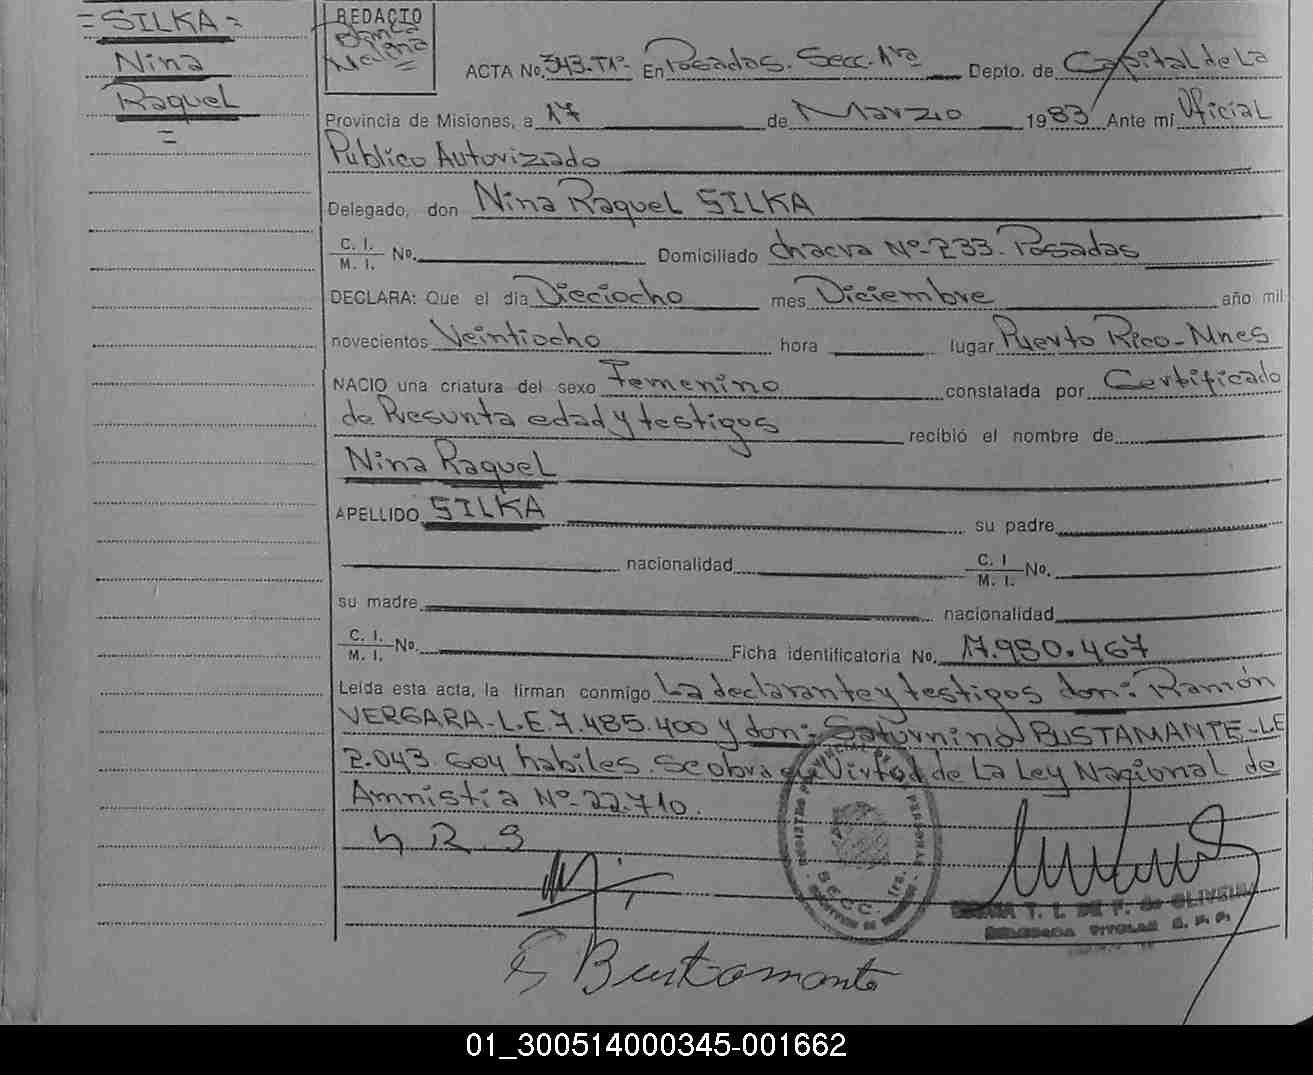 = SILKA =
Nina
Raquel
=
REDACTO
ACTA No. 343.T1º. En Posadas. Secc. 1ra Depto. de Capital de La
Provincia de Misiones, a 17 de Marzo 1983 Ante mi Oficial
Publico Autorizado
Delegado, don Nina Raquel SILKA
C. I. M. I. No. Domiciliado Chacra Nº 233. Posadas
DECLARA: Que el dia Dieciocho mes Diciembre año mil
novecientos Veintiocho hora lugar Puerto Rico - Mnes
NACIO una criatura del sexo Femenino constatada por Certificado
de Presunta edad y testigos recibió el nombre de
Nina Raquel
APELLIDO SILKA su padre
nacionalidad C. I M. I. No.
su madre nacionalidad
C. I. M. I. No. Ficha identificatoria No. 17.980.467
Leída esta acta, la firman conmigo La declarante y testigos don: Ramón
VERGARA - L.E. 7.485.400 y don: Saturnino BUSTAMANTE - LE
2.043.604 habiles. Se obra en Virtud de La Ley Nacional de
Amnistia Nº 22.710.
N R S
SECC. 1ra.
T. I. DE F. de OLIVEIRA
DELEGADA TITULAR
S Bustamante
01_300514000345-001662